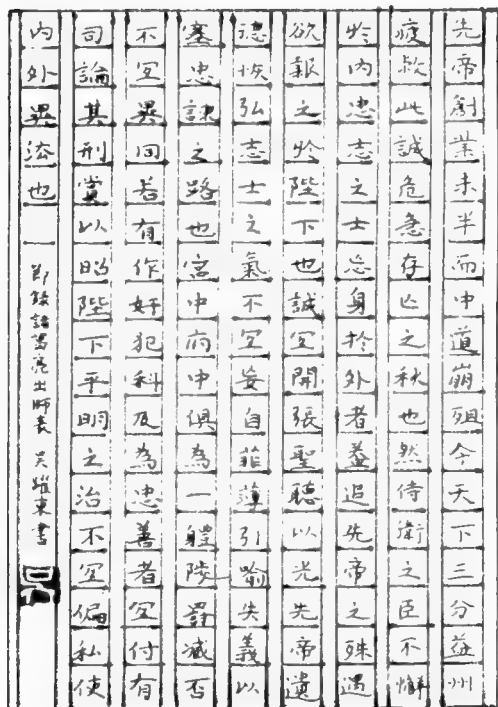 先帝創業未半而中道崩殂今天下三分益州
疲敝此誠危急存亡之秋也然侍衛之臣不懈
於內忠志之士忘身於外者蓋追先帝之殊遇
欲報之於陛下也誠宜開張聖聽以光先帝遺
德恢弘志士之氣不宜妄自菲薄引喻失義以
塞忠諫之路也宮中府中俱為一體陟罰臧否
不宜異同若有作奸犯科及為忠善者宜付有
司論其刑賞以昭陛下平明之治不宜偏私使
內外異法也 節錄諸葛亮出師表 吳耀東書